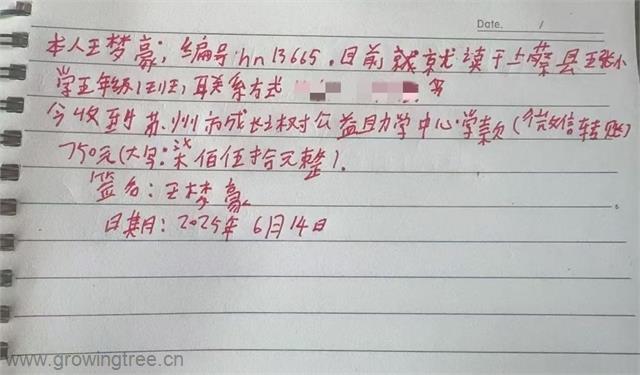 Date.      /
本人王梦豪，编号:hn13665.目前就就读于上蔡县王张小
学五年级(五)班,联系方式
今收到苏州市成长树公益助学中心学款(微信转账)
750元(大写: 佰伍拾元整).
签名:王梦豪
日期:2025年6月14日
www.growingtree.cn